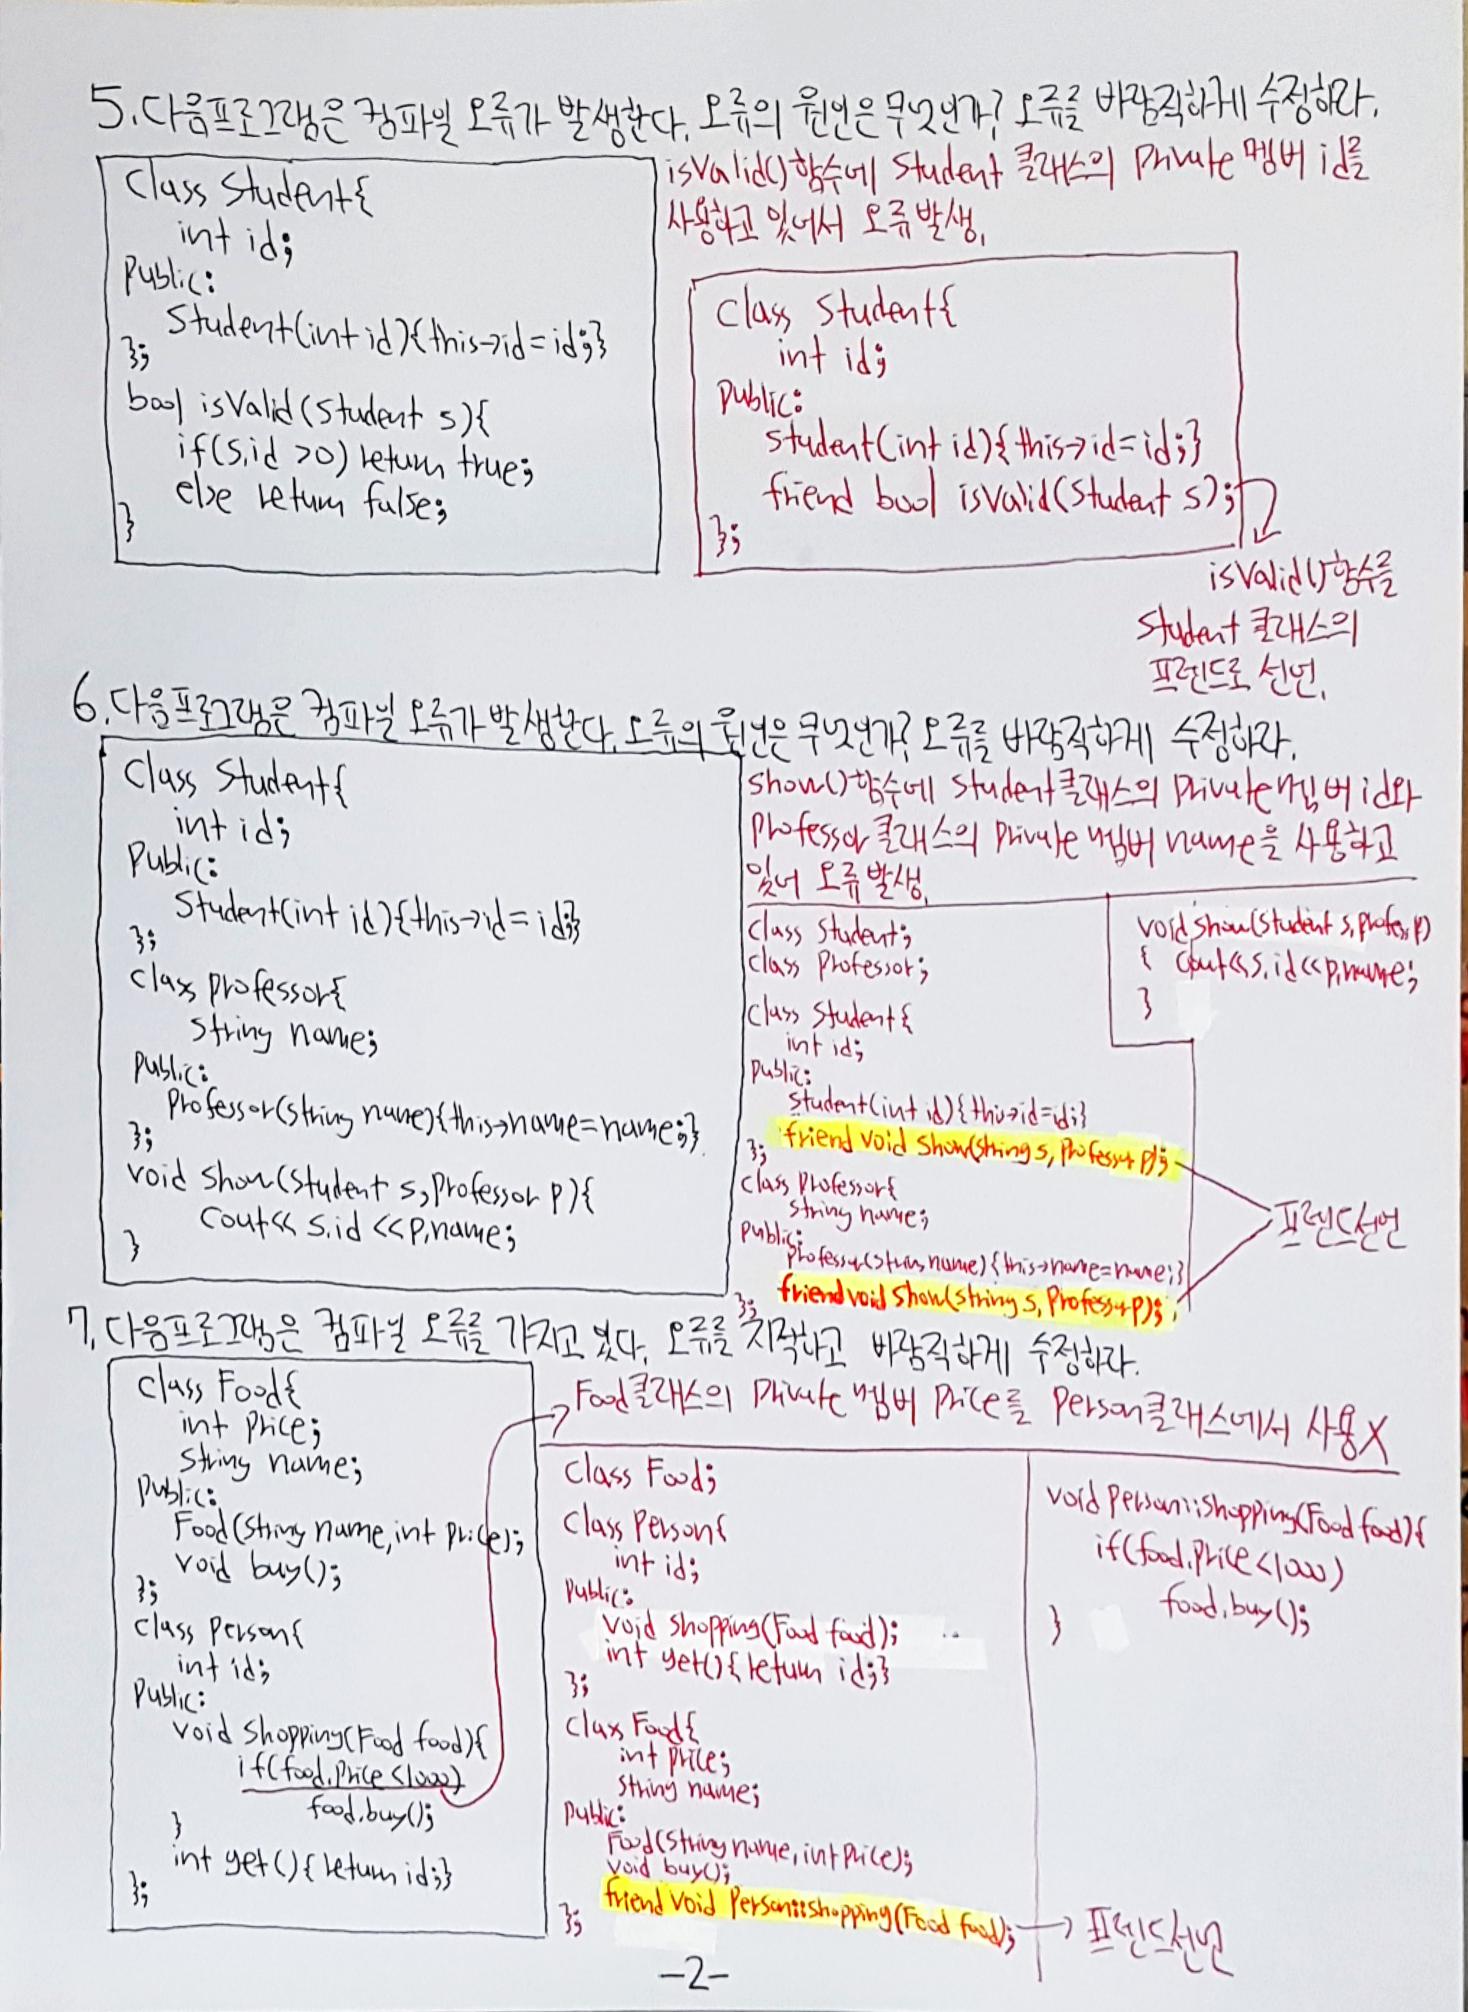 5. 다음프로그램은 컴파일 오류가 발생한다. 오류의 원인은 무엇인가? 오류를 바람직하게 수정하라.
class Student{
int id;
public:
Student(int id){this->id=id;}
};
bool isValid(Student s){
if(s.id >0) return true;
else return false;
}
isValid()함수에 Student 클래스의 Private 멤버 id를
사용하고 있어서 오류 발생.
class Student{
int id;
public:
student(int id){this->id=id;}
friend bool isValid(Student s);
};
isValid()함수를
Student 클래스의
프렌드로 선언.
6. 다음프로그램은 컴파일 오류가 발생한다. 오류의 원인은 무엇인가? 오류를 바람직하게 수정하라.
class Student{
int id;
public:
Student(int id){this->id=id;}
};
class professor{
string name;
public:
Professor(string name){this->name=name;}
};
void show(Student s, Professor p){
cout<< s.id <<p.name;
}
show()함수에 Student클래스의 Private멤버 id와
Professor 클래스의 Private 멤버 name을 사용하고
있어 오류 발생.
class Student;
class Professor;
class Student{
int id;
public:
student(int id){this->id=id;}
friend void show(string s, Professor p);
};
class Professor{
string name;
public:
professor(string name){this->name=name;}
friend void show(string s, Professor p);
};
void show(Student s, profess p)
{ cout<<s.id<<p.name;
}
프렌드선언
7. 다음프로그램은 컴파일 오류를 가지고 있다. 오류를 지적하고 바람직하게 수정하라.
class Food{
int price;
string name;
public:
Food(string name, int price);
void buy();
};
class Person{
int id;
public:
void shopping(Food food){
if(food.price<1000)
food.buy();
}
int get(){return id;}
};
Food클래스의 Private 멤버 Price를 Person클래스에서 사용X
class Food;
class Person{
int id;
public:
void shopping(Food food);
int get(){return id;}
};
class Food{
int price;
string name;
public:
Food(string name, int price);
void buy();
friend void Person::shopping(Food food);
};
프렌드선언
void person::shopping(Food food){
if(food.price<1000)
food.buy();
}
-2-